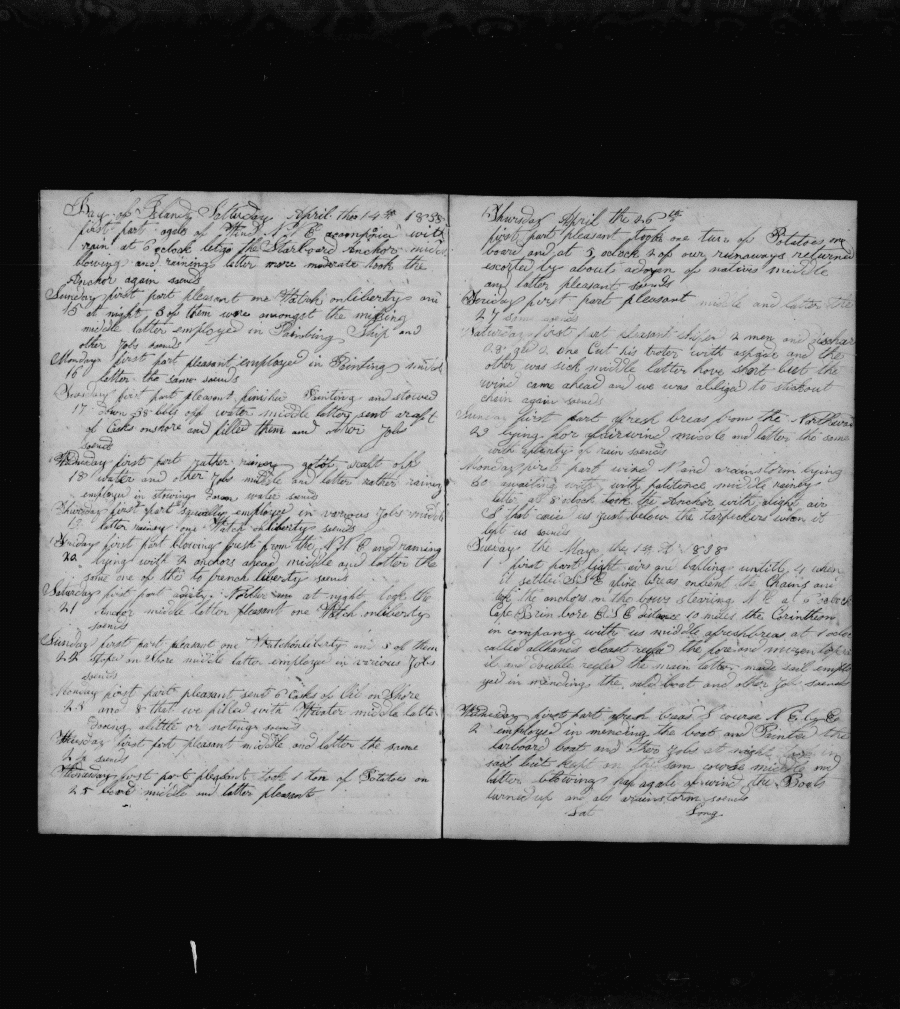 Bay of Islands Satterday April the 14th 1838
first part agale of Wind N N E accompnied with
rain at 6 oclock letgo the Starboard Anchor midd
blowing and raining latter more moderate took the
Anchor again sounds
Sunday first part pleasant one Watch onliberty and
15 at night 3 of them were amongst the missing
middle latter employed in Painting Ship and
other Jobs sounds
Monday first part pleasant employed in Painting middle
16 latter the same sounds
Tuesday first part pleasant finished Painting and stowed
17 down 38 bbls off water middle latter sent araft
of Casks onshore and filled them and other Jobs
sounds
Wednesday first part rather rainey raft off
18 water and other Jobs middle and latter rather rainey
employed in stowing down water sounds
Thursday first part squally employed in various Jobs middle
19 latter rainey one Watch onliberty sounds
Friday first part blowing fresh from the N N E and raining
20 lying with 2 anchors ahead middle and latter the
same one of the
Saturday first part at night took the
21 Anchor middle latter pleasant one Watch onliberty
sounds
Sunday first part pleasant one Watchonliberty and 3 of them
22 stopd on Shore middle latter employed in various Jobs
sounds
Monday first part pleasant sent 6 Casks of Oil on Shore
23 and 8 that we filled with Water middle latter
Dooing alittle or notings sounds
Tuesday first part pleasant middle and latter the same
24 sounds
Wensday first part pleasant took 1 ton of Potatoes on
25 board middle and latter pleasant

Thursday April the 26th
first part pleasant took one turn of Potatoes on
board and at 5 oclock 2 of our runaways returned
escorted by about adozen of natives middle
and latter pleasant sounds
Friday first part pleasant middle and latter the
27 same sounds
Saturday first part pleasant ship 2 men and dischar
28 one Cut his with and the
other was sick middle latter hove short but the
wind came ahead and we was abliged to slackout
chain again sounds
Sunday first part afresh breas from the Northward
29 lying for afairwind middle and latter the same
with aplenty of rain sounds
Monday first part wind N and arainstorm lying
30 awaiting with patience middle rainey
latter at 8 oclock took the Anchor with alight air
S that caried us just below the when it
left us sounds
Tuesday the May the 1st 1838
1 first part light airs and untill 4 when
it settled S S E afine breas the Chains and
the anchors on the bows stearing N E at 7 oclock
Cape Brin bore E S E distance 10 miles the Corintheon
in company with us middle afreshbreas at 1 oclock
called allhands reefd the fore and mizen
it and double reefd the main latter made sail emplo
yed in mending the boat and other Jobs sounds
Wednesday first part afresh breas S course N E by E
2 employed in mending the boat and Painted the
larboard boat and other Jobs at night
sail but kept on the same course middle and
latter blowing agale awind the Boats
turned up and als arainstorm sounds
Lat Long